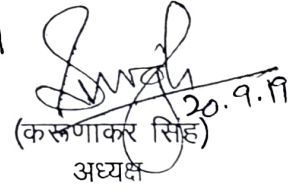 20.9.19
(करूणाकर सिंह)
अध्यक्ष